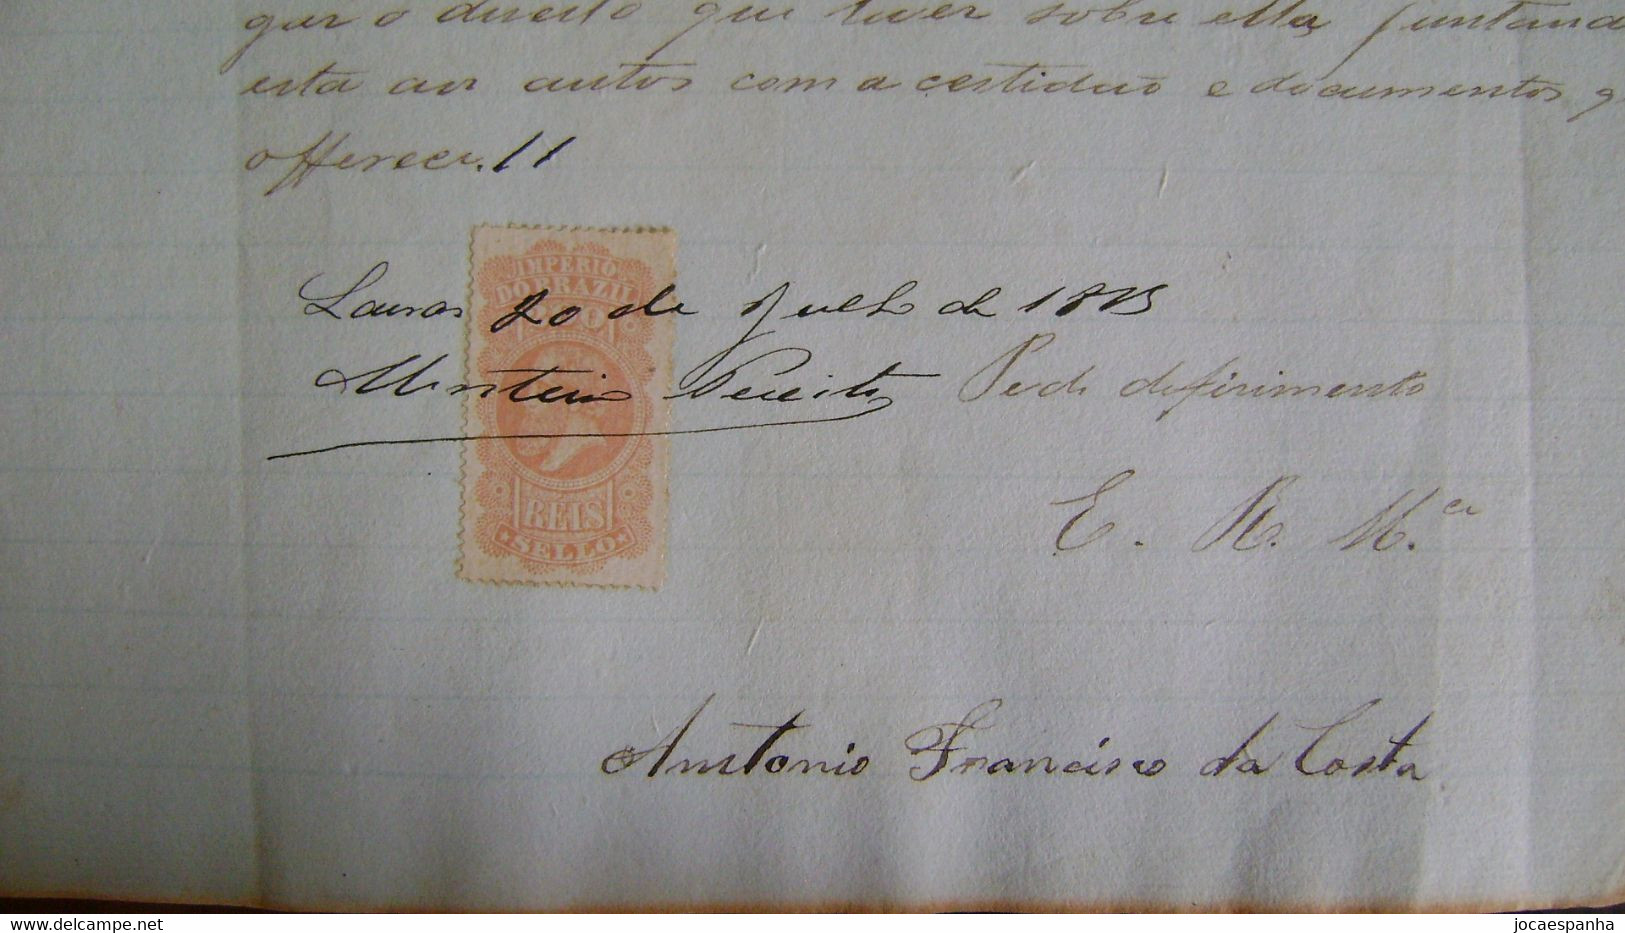 gar o direito que tiver sobre ella, juntando
esta aos autos com a certidão e documentos q
offerece. 11
IMPERIO
DO BRAZIL
200
Lavras 20 de Julho de 1875
Monteiro Peixoto Pede defirimento
REIS
SELLO
E. R. M.ce
Antonio Francisco da Costa
www.delcampe.net
jocaespanha